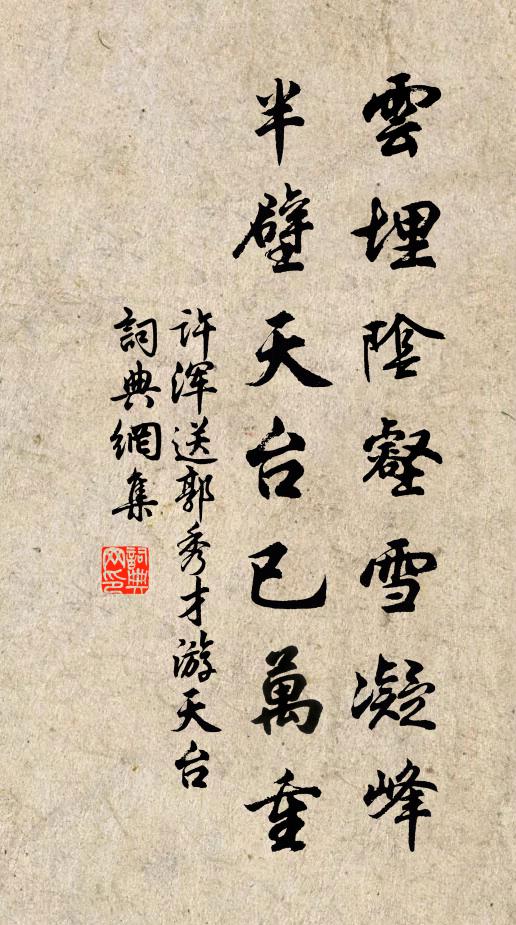 雲埋陰壑雪凝峰
半壁天台已萬重
许渾送郭秀才游天台
詞典網集
詞典网印